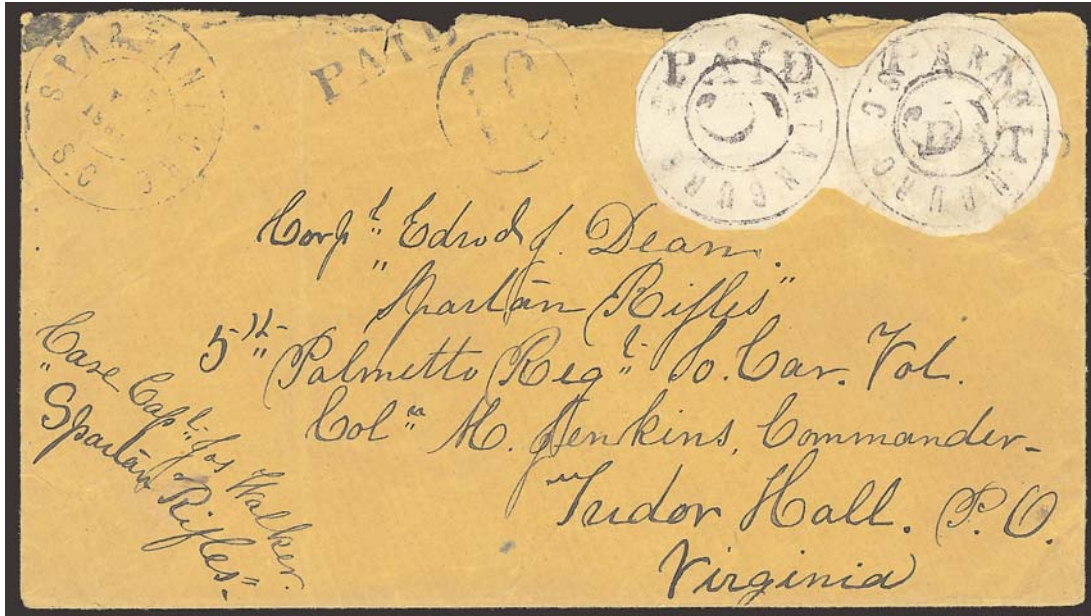 SPARTANBURG S.C
PAID
10
PAID
SPARTANBURG S.C.
PAID
5
PAID
SPARTANBURG S.C.
5
PAID
Corp'l Edwd J. Dean.
"Spartan Rifles"
5th Palmetto Reg't So. Car. Vol.
Col" M. Jenkins, Commander-
Tudor Hall. P.O.
Virginia
Care Capt. Jos Walker.
"Spartan Rifles"